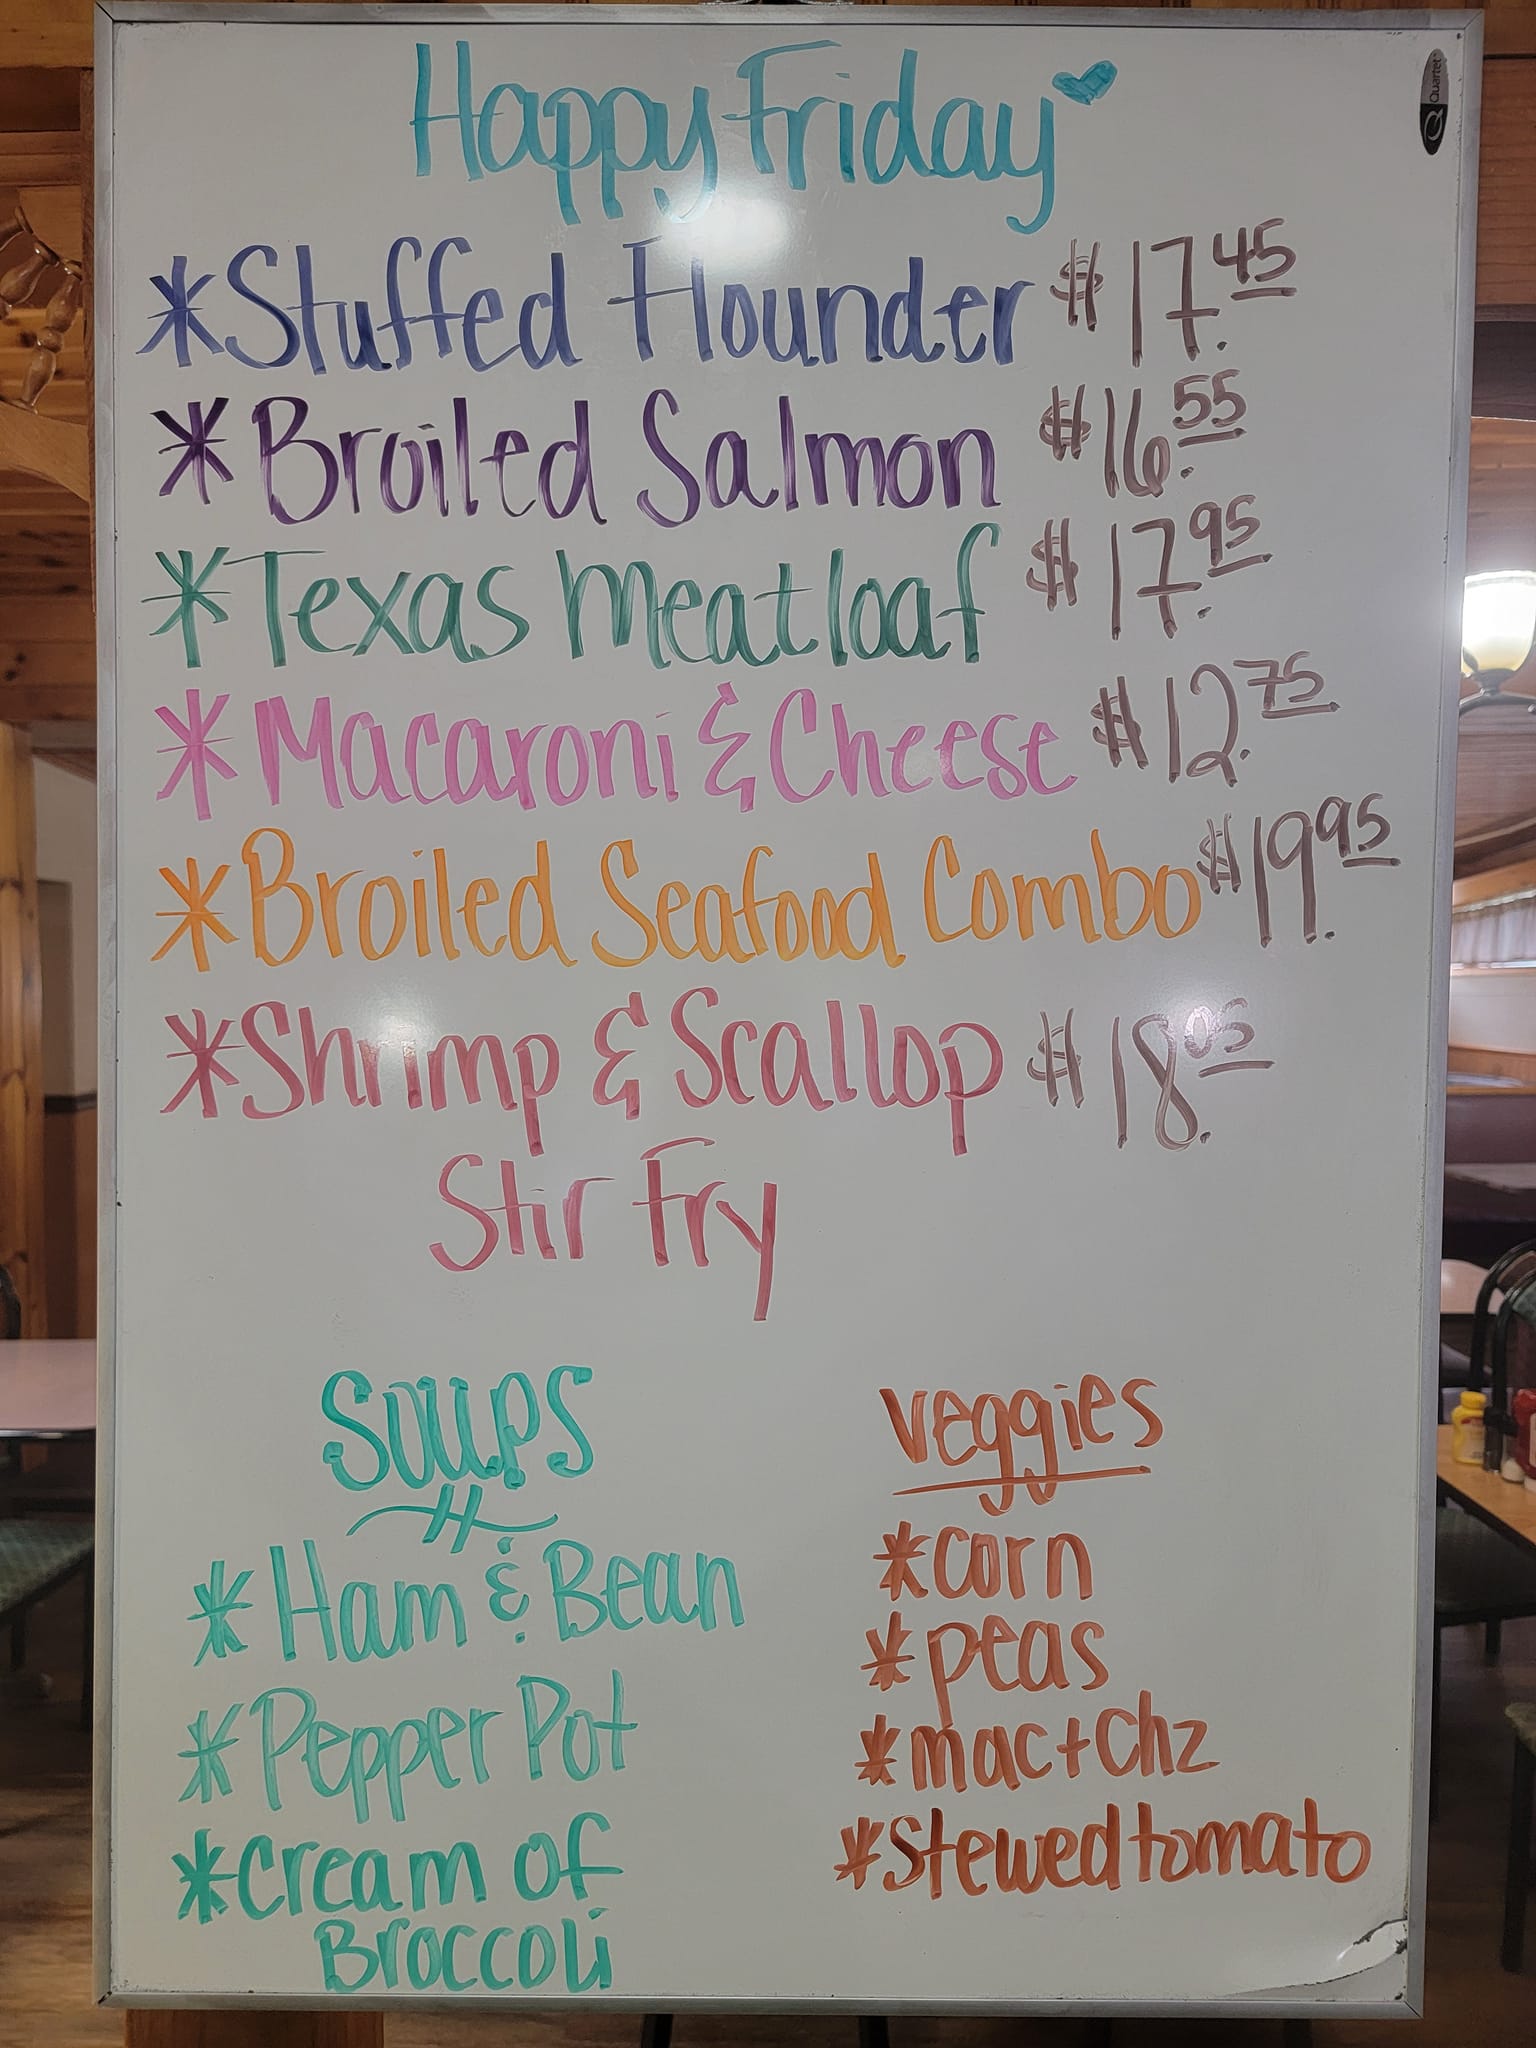 Happy Friday
Quartet
*Stuffed Flounder $17.45
*Broiled Salmon $16.55
*Texas Meatloaf $17.95
*Macaroni & Cheese $12.75
*Broiled Seafood Combo $19.95
*Shrimp & Scallop $18.05
Stir Fry
Soups
*Ham & Bean
*Pepper Pot
*Cream of
Broccoli
Veggies
*corn
*peas
*mac+chz
*Stewed tomato